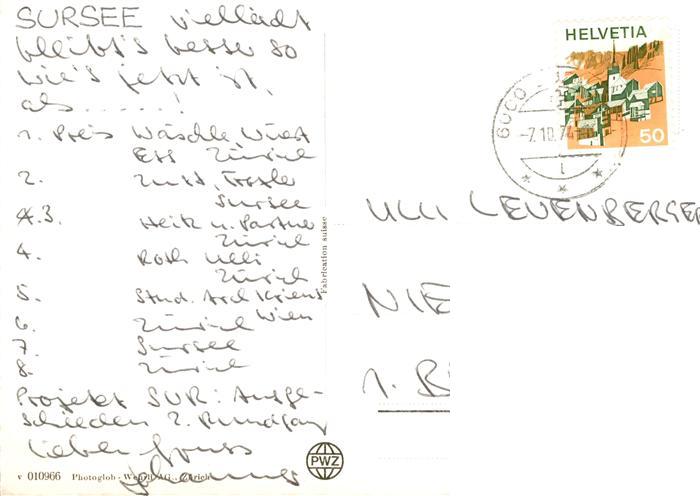 SURSEE vielleicht
bleibt's besser so
wie's jetzt ist,
als ......!
1. Preis Wäschle
ETH Zürich
2.
Sursee
3. Heitz u. Partner
Zürich
4. Roth Ulli
Zürich
5. Stud. Arch Kriens
Wien
6. Zürich
7. Sursee
8. Zürich
Projekt SUR: Ausge-
schieden 2. Rundgang
lieber Gruss
Fabrication suisse
v 010966 Photoglob-Wehrli AG., Zürich
PWZ
HELVETIA
50
6000
-7.10.74
ULLI LEUENBERGER
NIE
1. B